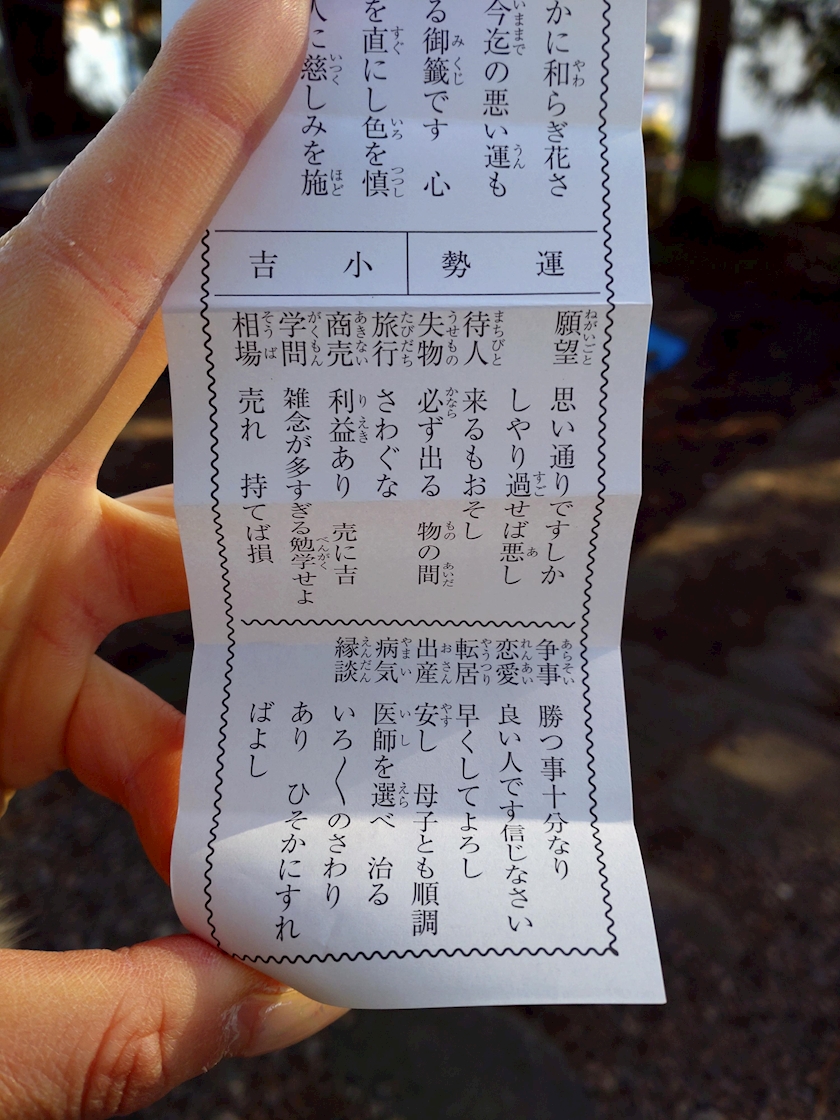 かに和らぎ花さ
今迄の悪い運も
る御籤です 心
を直にし色を慎
人に慈しみを施
運勢 小吉
願望 思い通りですしか
しやり過せば悪し
待人 来るもおそし
失物 必ず出る 物の間
旅行 さわぐな
商売 利益あり 売に吉
学問 雑念が多すぎる勉学せよ
相場 売れ 持てば損
争事 勝つ事十分なり
恋愛 良い人です信じなさい
転居 早くしてよろし
出産 安し 母子とも順調
病気 医師を選べ 治る
縁談 いろ〱のさわり
あり ひそかにすれ
ばよし